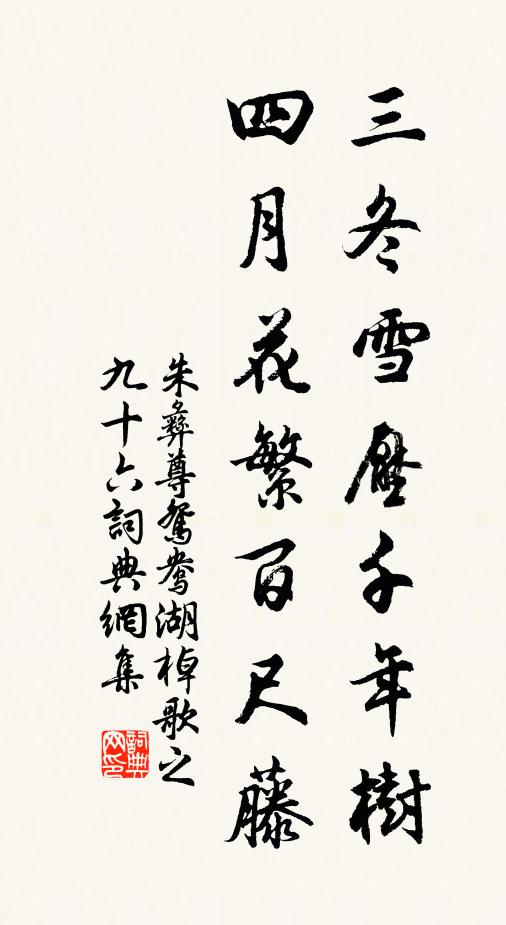 三冬雪壓千年樹
四月花繁百尺藤
朱彝尊鴛鴦湖棹歌之
九十六詞典網集
詞典網印